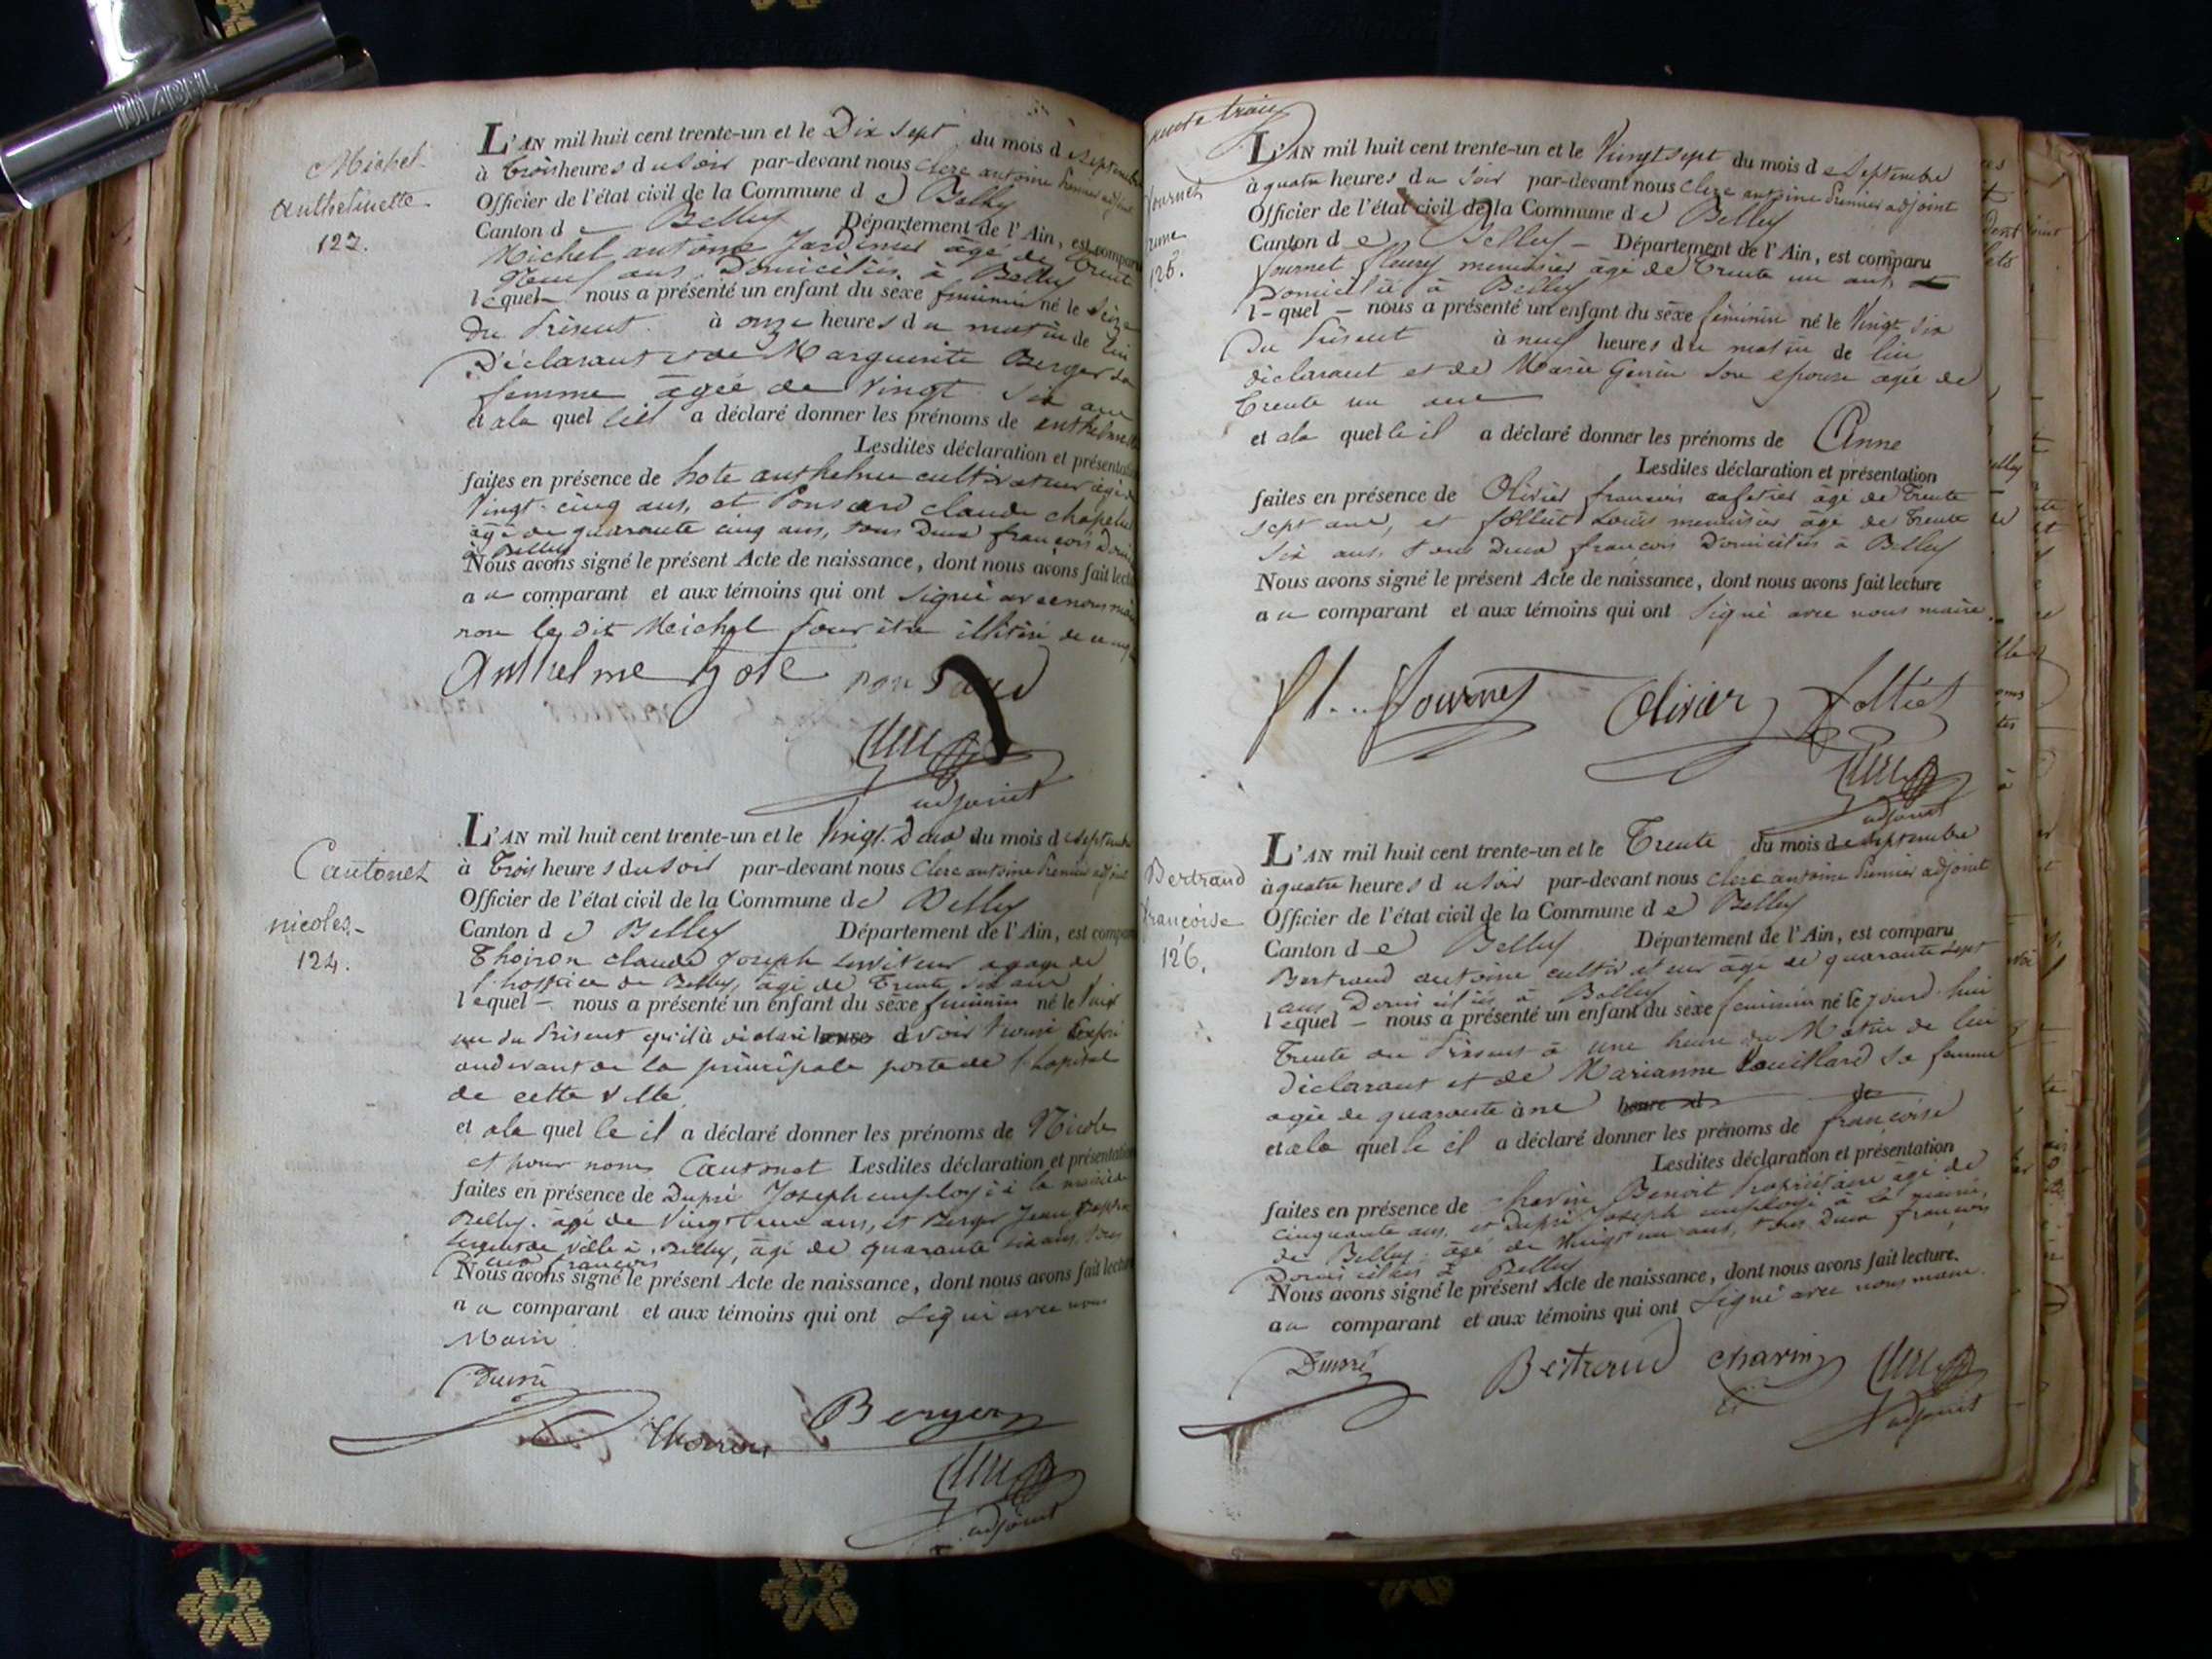 Michel
anthelmette
123.
L'AN mil huit cent trente-un et le Dix sept du mois de septembre
à trois heures du soir par-devant nous Clerc antoine Premier adjoint
Officier de l'état civil de la Commune de Belley
Canton de Belley Département de l'Ain, est comparu
Michel antoine Jardinier âgé de trente
Neuf ans Domicilié à Belley
lequel nous a présenté un enfant du sexe féminin né le Seize
du Présent à onze heures du matin de lui
Déclarant et de Marguerite Berger sa
femme âgée de Vingt six ans
et a la quel le il a déclaré donner les prénoms de
Lesdites déclaration et présentation
faites en présence de hote anthelme cultivateur âgé de
Vingt-cinq ans, et Ponsard claude chapelier
âgé de quarante cinq ans, tous Deux françois
à Belley
Nous avons signé le présent Acte de naissance, dont nous avons fait lecture
au comparant et aux témoins qui ont signé avec nous
non le dit Michel pour être illitéré de
Anthelme hote ponsard
Clerc
adjoint
Cantonet
nicoles
124.
L'AN mil huit cent trente-un et le Vingt-Deux du mois de septembre
à trois heures du soir par-devant nous Clerc antoine Premier adjoint
Officier de l'état civil de la Commune de Belley
Canton de Belley Département de l'Ain, est comparu
Thoiron claude Joseph serviteur a gage de
l'hospice de Belley, âgé de trente six ans
lequel nous a présenté un enfant du sexe féminin né le Vingt
un du Présent qu'il à déclaré avoir trouvé Exposé
au devant de la principale porte de l'hopital
de cette ville
et a la quel le il a déclaré donner les prénoms de Nicole
et pour nom Cantonet Lesdites déclaration et présentation
faites en présence de Dupré Joseph employé à la mairie de
Belley âgé de Vingt un ans, et Berger Jean
de Ville à Belley, âgé de quarante six ans, tous
Deux françois
Nous avons signé le présent Acte de naissance, dont nous avons fait lecture
au comparant et aux témoins qui ont signé avec nous
Maire
Dupré
Thoiron Berger
Clerc
adjoint
trois
Fournet
125.
L'AN mil huit cent trente-un et le Vingt sept du mois de Septembre
à quatre heures du soir par-devant nous Clerc antoine Premier adjoint
Officier de l'état civil de la Commune de Belley
Canton de Belley Département de l'Ain, est comparu
fournet fleury menuisier âgé de trente un ans
Domicilié à Belley
l-quel nous a présenté un enfant du sexe féminin né le Vingt six
Du Présent à neuf heures du matin de lui
déclarant et de Marie Genin son epouse âgée de
trente un ans
et a la quel le il a déclaré donner les prénoms de Anne
Lesdites déclaration et présentation
faites en présence de Olivier françois cafetier âgé de trente
sept ans, et folliet Louis menuisier âgé de trente
six ans, tous Deux françois Domiciliés à Belley
Nous avons signé le présent Acte de naissance, dont nous avons fait lecture
au comparant et aux témoins qui ont signé avec nous maire
fl... fournet Olivier folliet
Clerc
adjoint
Bertrand
françoise
126.
L'AN mil huit cent trente-un et le Trente du mois de septembre
à quatre heures du soir par-devant nous Clerc antoine Premier adjoint
Officier de l'état civil de la Commune de Belley
Canton de Belley Département de l'Ain, est comparu
Bertrand antoine cultivateur âgé de quarante sept
ans Domicilié à Belley
lequel nous a présenté un enfant du sexe féminin né le jourd'hui
trente du Présent à une heure du Matin de lui
déclarant et de Marianne Pouillard sa femme
agée de quarante ans heure d de
et a la quel le il a déclaré donner les prénoms de françoise
Lesdites déclaration et présentation
faites en présence de Charvin Benoit Propriétaire âgé de
cinquante ans, et Dupré Joseph employé à la mairie,
de Belley âgé de Vingt un ans, tous Deux françois
Domiciliés à Belley
Nous avons signé le présent Acte de naissance, dont nous avons fait lecture.
au comparant et aux témoins qui ont signé avec nous maire.
Dupré Bertrand charvin Clerc
adjoint